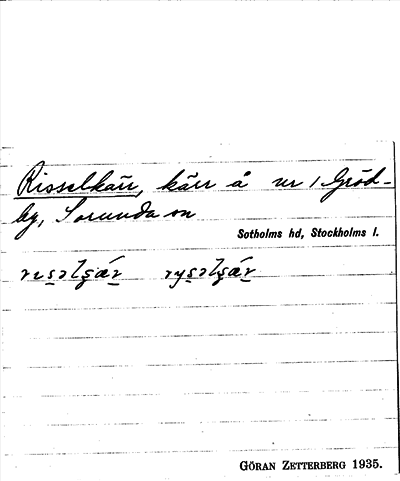 Risselkärr, kärr å nr 1 Gröd-
by, Sorunda sn
Sotholms hd, Stockholms l.
GÖRAN ZETTERBERG 1935.